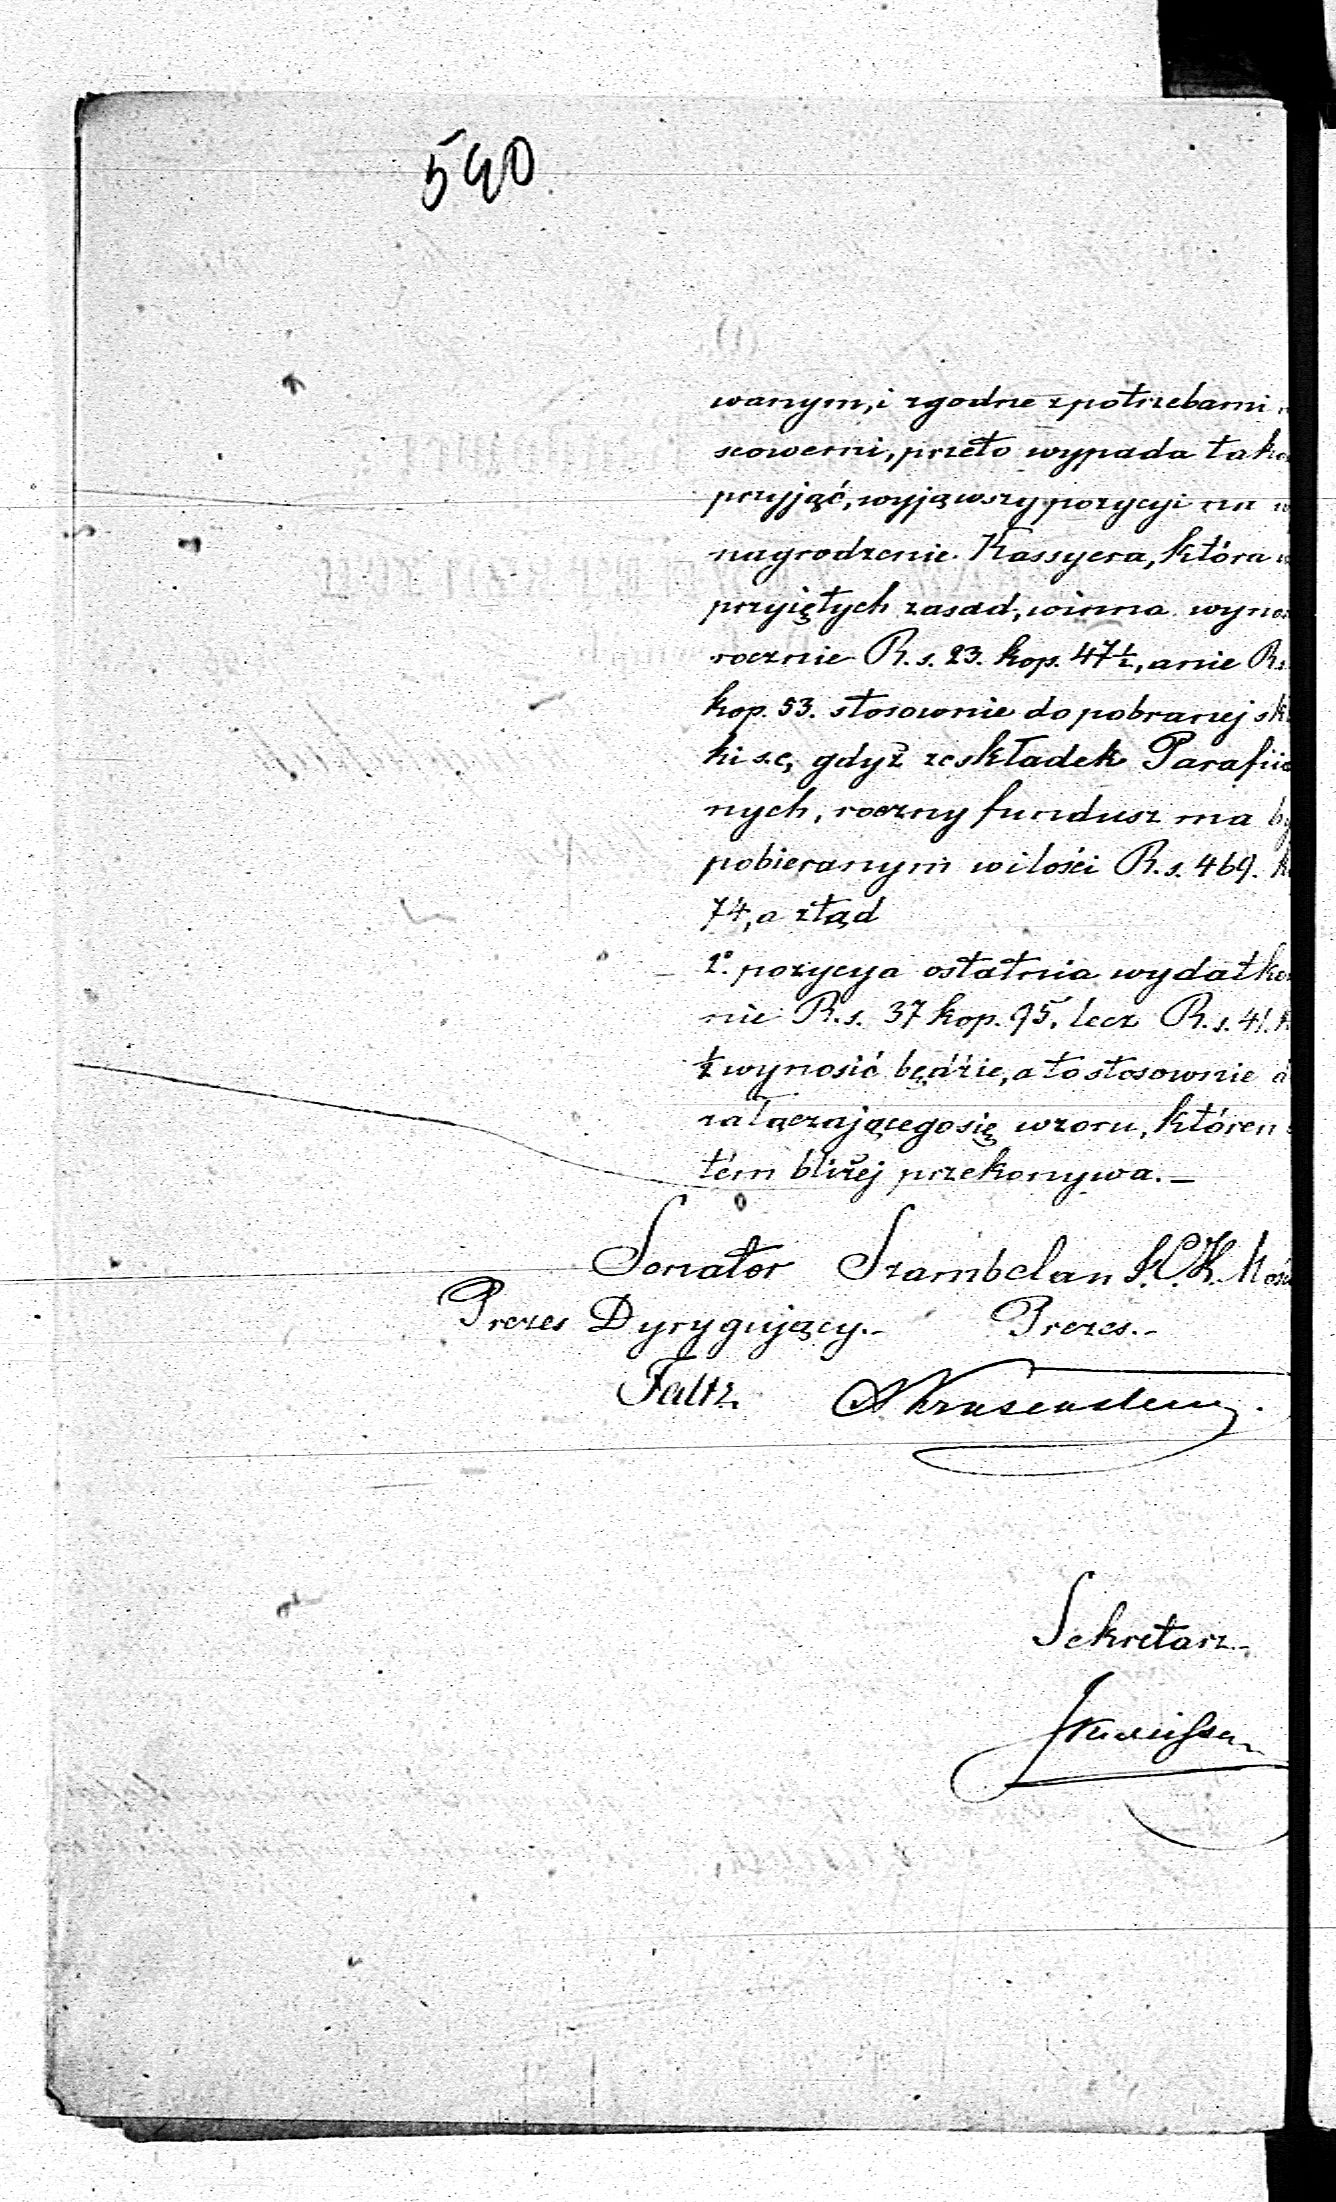 540
wanym, i zgodne z potrzebami
scowemi, przeto wypada tako
przyjąć, wyjąwszy pozycyi na w
nagrodzenie Kassyera, która w
przyiętych zasad, winna wynos
rocznie R. s. 23. kop. 47½, a nie Rs.
kop. 53. stosownie do pobranej skł
ki s.e, gdyż ze składek Parafii
nych, roczny fundusz ma by
pobieranym w ilości R. s. 469. k
74, a ztąd
2º. pozycya ostatnia wydatko
nie R. s. 37 kop. 95. lecz R. s. 41. k
½ wynosić będzie, a to stosownie d
załączającego się wzoru, któren
tém bliżej przekonywa. —
Senator Szambelan J. C. K. Mości
Prezes Dyrygujący.- Prezes.-
Faltz
Sekretarz.-